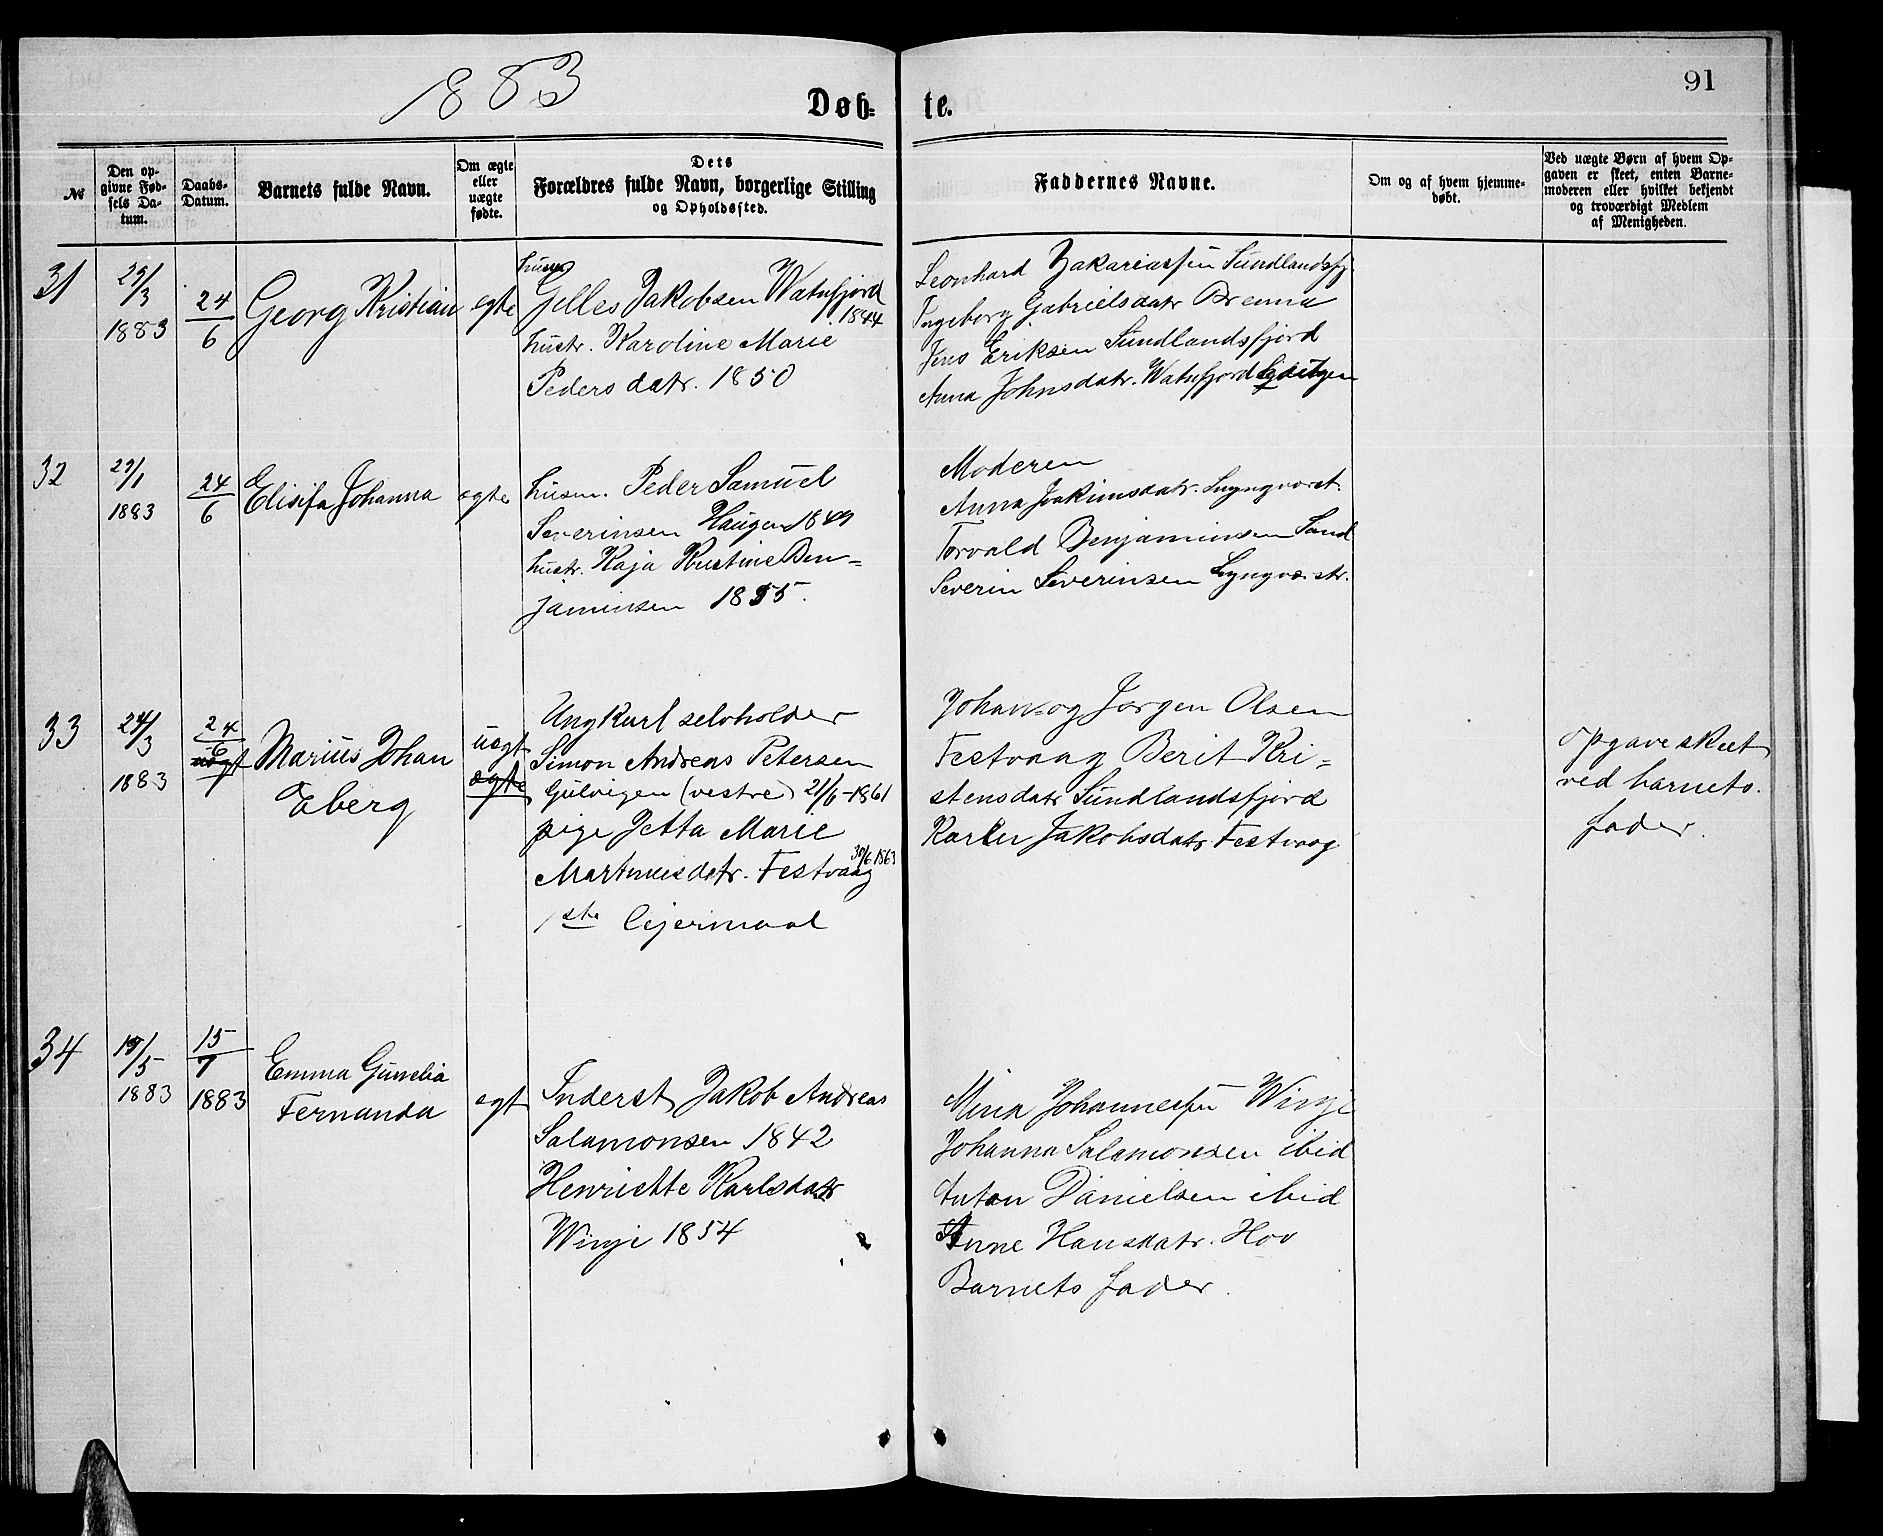 1883
Døb-
te.
91
№
Den op-
givne Fød-
sels Da-
tum.
Daabs-
Datum.
Barnets fulde Navn.
Om ægte
eller
uægte
fødte.
Dets
Forældres fulde Navn, borgerlige Stilling
og Opholdssted.
Faddernes Navne.
Om og af hvem hjemme-
døbt.
Ved uægte Børn af hvem Op-
gaven er skeet, enten Barne-
moderen eller hvilket bekjendt
og troværdigt Medlem
af Menigheden.
31
29/3
1883
24/6
Georg Kristian
egte
husm
Jelles Jakobsen Watnfjord
1844
hustr. Karoline Marie
Peders datr. 1850
Leonhard Zakariassen Sundlandsfj.
Ingeborg Gabrielsdatr Brenna
Jens Eriksen Sundlandsfjord
Anna Johnsdatr. Watnfjord
32
29/1
1883
24/6
Elisifa Johanna
egte
husm. Peder Samuel
Severinsen Haugen 1849
hustr. Kaja Kristine Ben-
jaminsen 1855.
Moderen
Anna Joakimsdatr. Lyngværst.
Torvald Benjaminsen Sand
Severin Severinsen Lyngværstr.
33
24/3
1883
24/6
uegt
Marius Johan
Eberg
uegt
egte
Ungkarl selvholder
Simon Andreas Petersen
Gulvigen (vestre) 21/6-1861
pige Jetta Marie
30/6 1863
Martinusdatr. Festvaag
1ste lejermaal
Johan og Jørgen Olsen
Festvaag Berit Kri-
stensdatr Sundlandsfjord
Karen Jakobsdatr Festvaag
opgave skeet
ved barnets
fader.
34
19/5
1883
15/7
1883
Emma Gunelia
Fernanda
egt
Inderst Jakob Andreas
Salamonsen 1842
Henriette Karlsdatr
Winje 1854
Mina Johannessen Winje
Johanna Salamonsen ibid
Anton Danielsen ibid
Anne Hansdatr. Hov
Barnets fader.